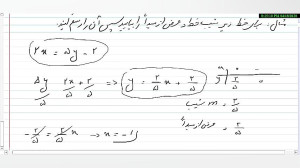 مثال: برای خط زیر شیب خط و عرض از مبدأ را بیابید سپس آن را رسم کنید.
2x = 5y - 2
5y/5 = 2x/5 + 2/5 → y = 2/5 x + 2/5
m = 2/5 شیب
2/5 = عرض از مبدأ
-2/5 = 2/5 x → x = -1